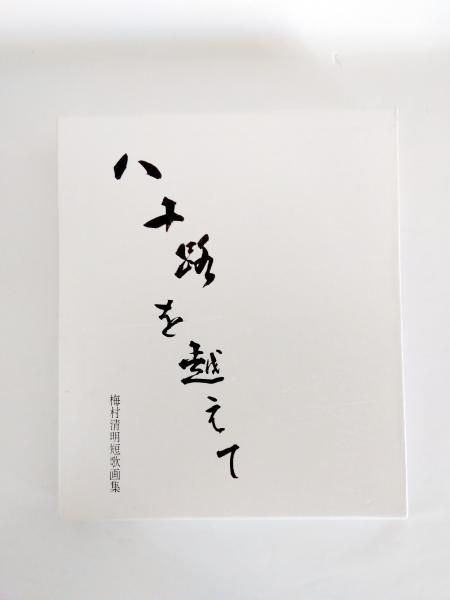 八十路を越えて
梅村清明短歌画集